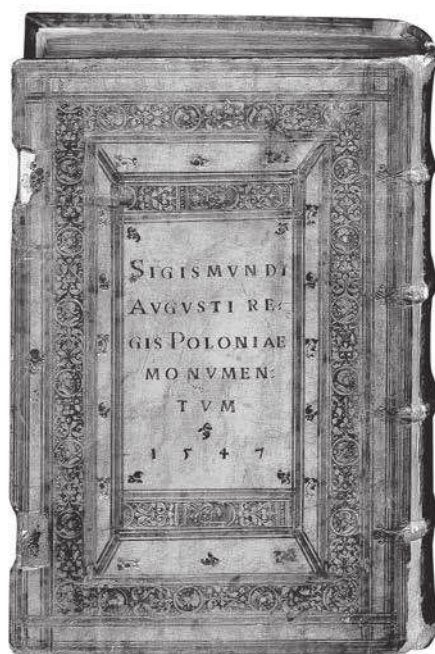 SIGISMVNDI
AVGVSTI RE:
GIS POLONIAE
MONVMEN:
TVM
1547